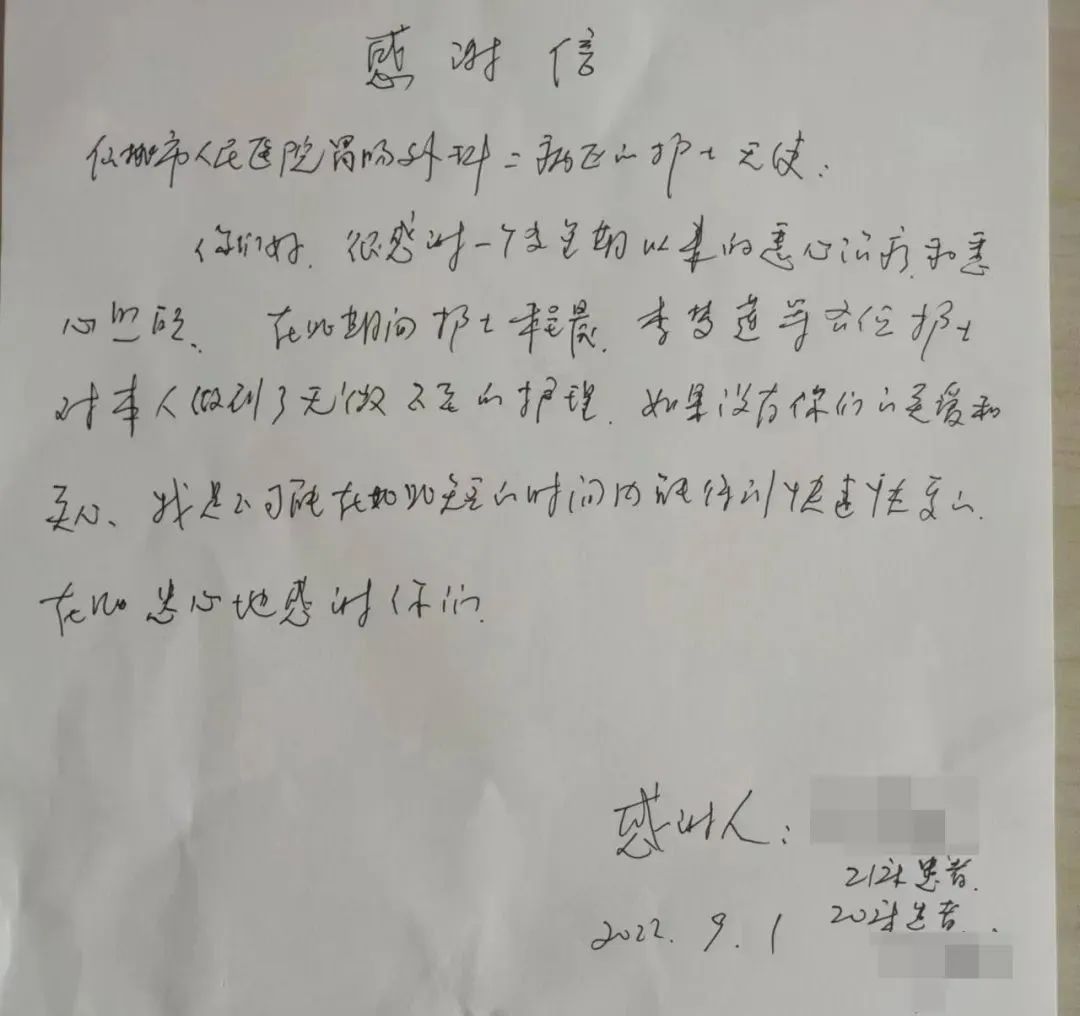 感谢信
仙桃市人民医院胃肠外科二病区的护士天使：
你们好.很感谢一个多星期以来的悉心治疗.和悉
心照顾、在此期间护士程晨.李梦莲等各位护士
对本人做到了无微不至的护理.如果没有你们的关爱和
关心、我是不可能在如此短的时间内能得到快速恢复的.
在此衷心地感谢你们.
感谢人：
21床患者.
2022.9.1 20床患者.